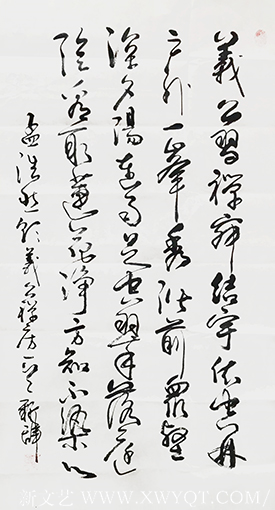 義公習禪寂結宇依空林
戶外一峰秀階前衆壑
深夕陽連雨足空翠落庭
陰看取蓮花淨方知不染心
孟浩然題義公禪房
新文艺 WWW.XWYQT.COM/